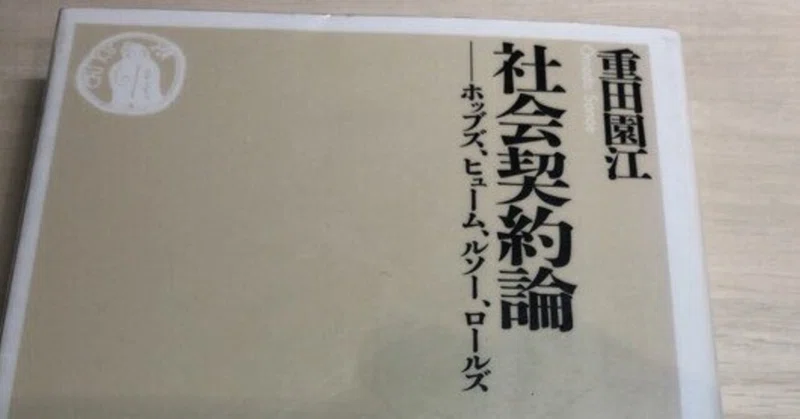 重田園江
Omoda Sonoe
社会契約論
──ホッブズ、ヒューム、ルソー、ロールズ